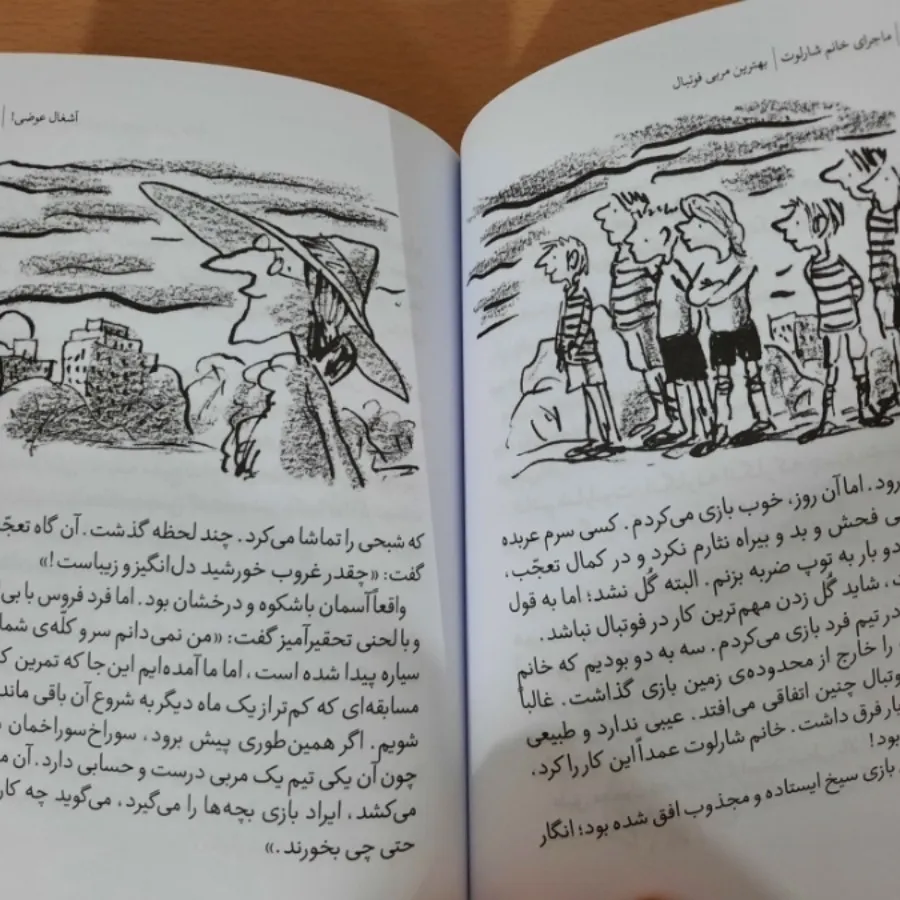 ماجرای خانم شارلوت | بهترین مربی فوتبال
رود. اما آن روز، خوب بازی می‌کردم. کسی سرم عربده
فحش و بد و بیراه نثارم نکرد و در کمال تعجّب،
دو بار به توپ ضربه بزنم. البته گُل نشد؛ اما به قول
، شاید گُل زدن مهم‌ترین کار در فوتبال نباشد.
در تیم فرد بازی می‌کردم. سه به دو بودیم که خانم
را خارج از محدوده‌ی زمین بازی گذاشت. غالباً
چنین اتفاقی می‌افتد. عیبی ندارد و طبیعی
فرق داشت. خانم شارلوت عمداً این کار را کرد.
بود!
بازی سیخ ایستاده و مجذوب افق شده بود؛ انگار
آشغال عوضی! |
که شبحی را تماشا می‌کرد. چند لحظه گذشت. آن گاه
گفت: «چقدر غروب خورشید دل‌انگیز و زیباست!»
واقعاً آسمان باشکوه و درخشان بود. اما فرد فروس با
و با لحنی تحقیرآمیز گفت: «من نمی‌دانم سر و کلّه‌ی شما
سیاره پیدا شده است، اما ما آمده‌ایم این جا که تمرین
مسابقه‌ای که کم‌تر از یک ماه دیگر به شروع آن باقی
شویم. اگر همین‌طوری پیش برود، سوراخ‌سوراخمان
چون آن یکی تیم یک مربی درست و حسابی دارد. آن
می‌کشد، ایراد بازی بچه‌ها را می‌گیرد، می‌گوید چه
حتی چی بخورند.»